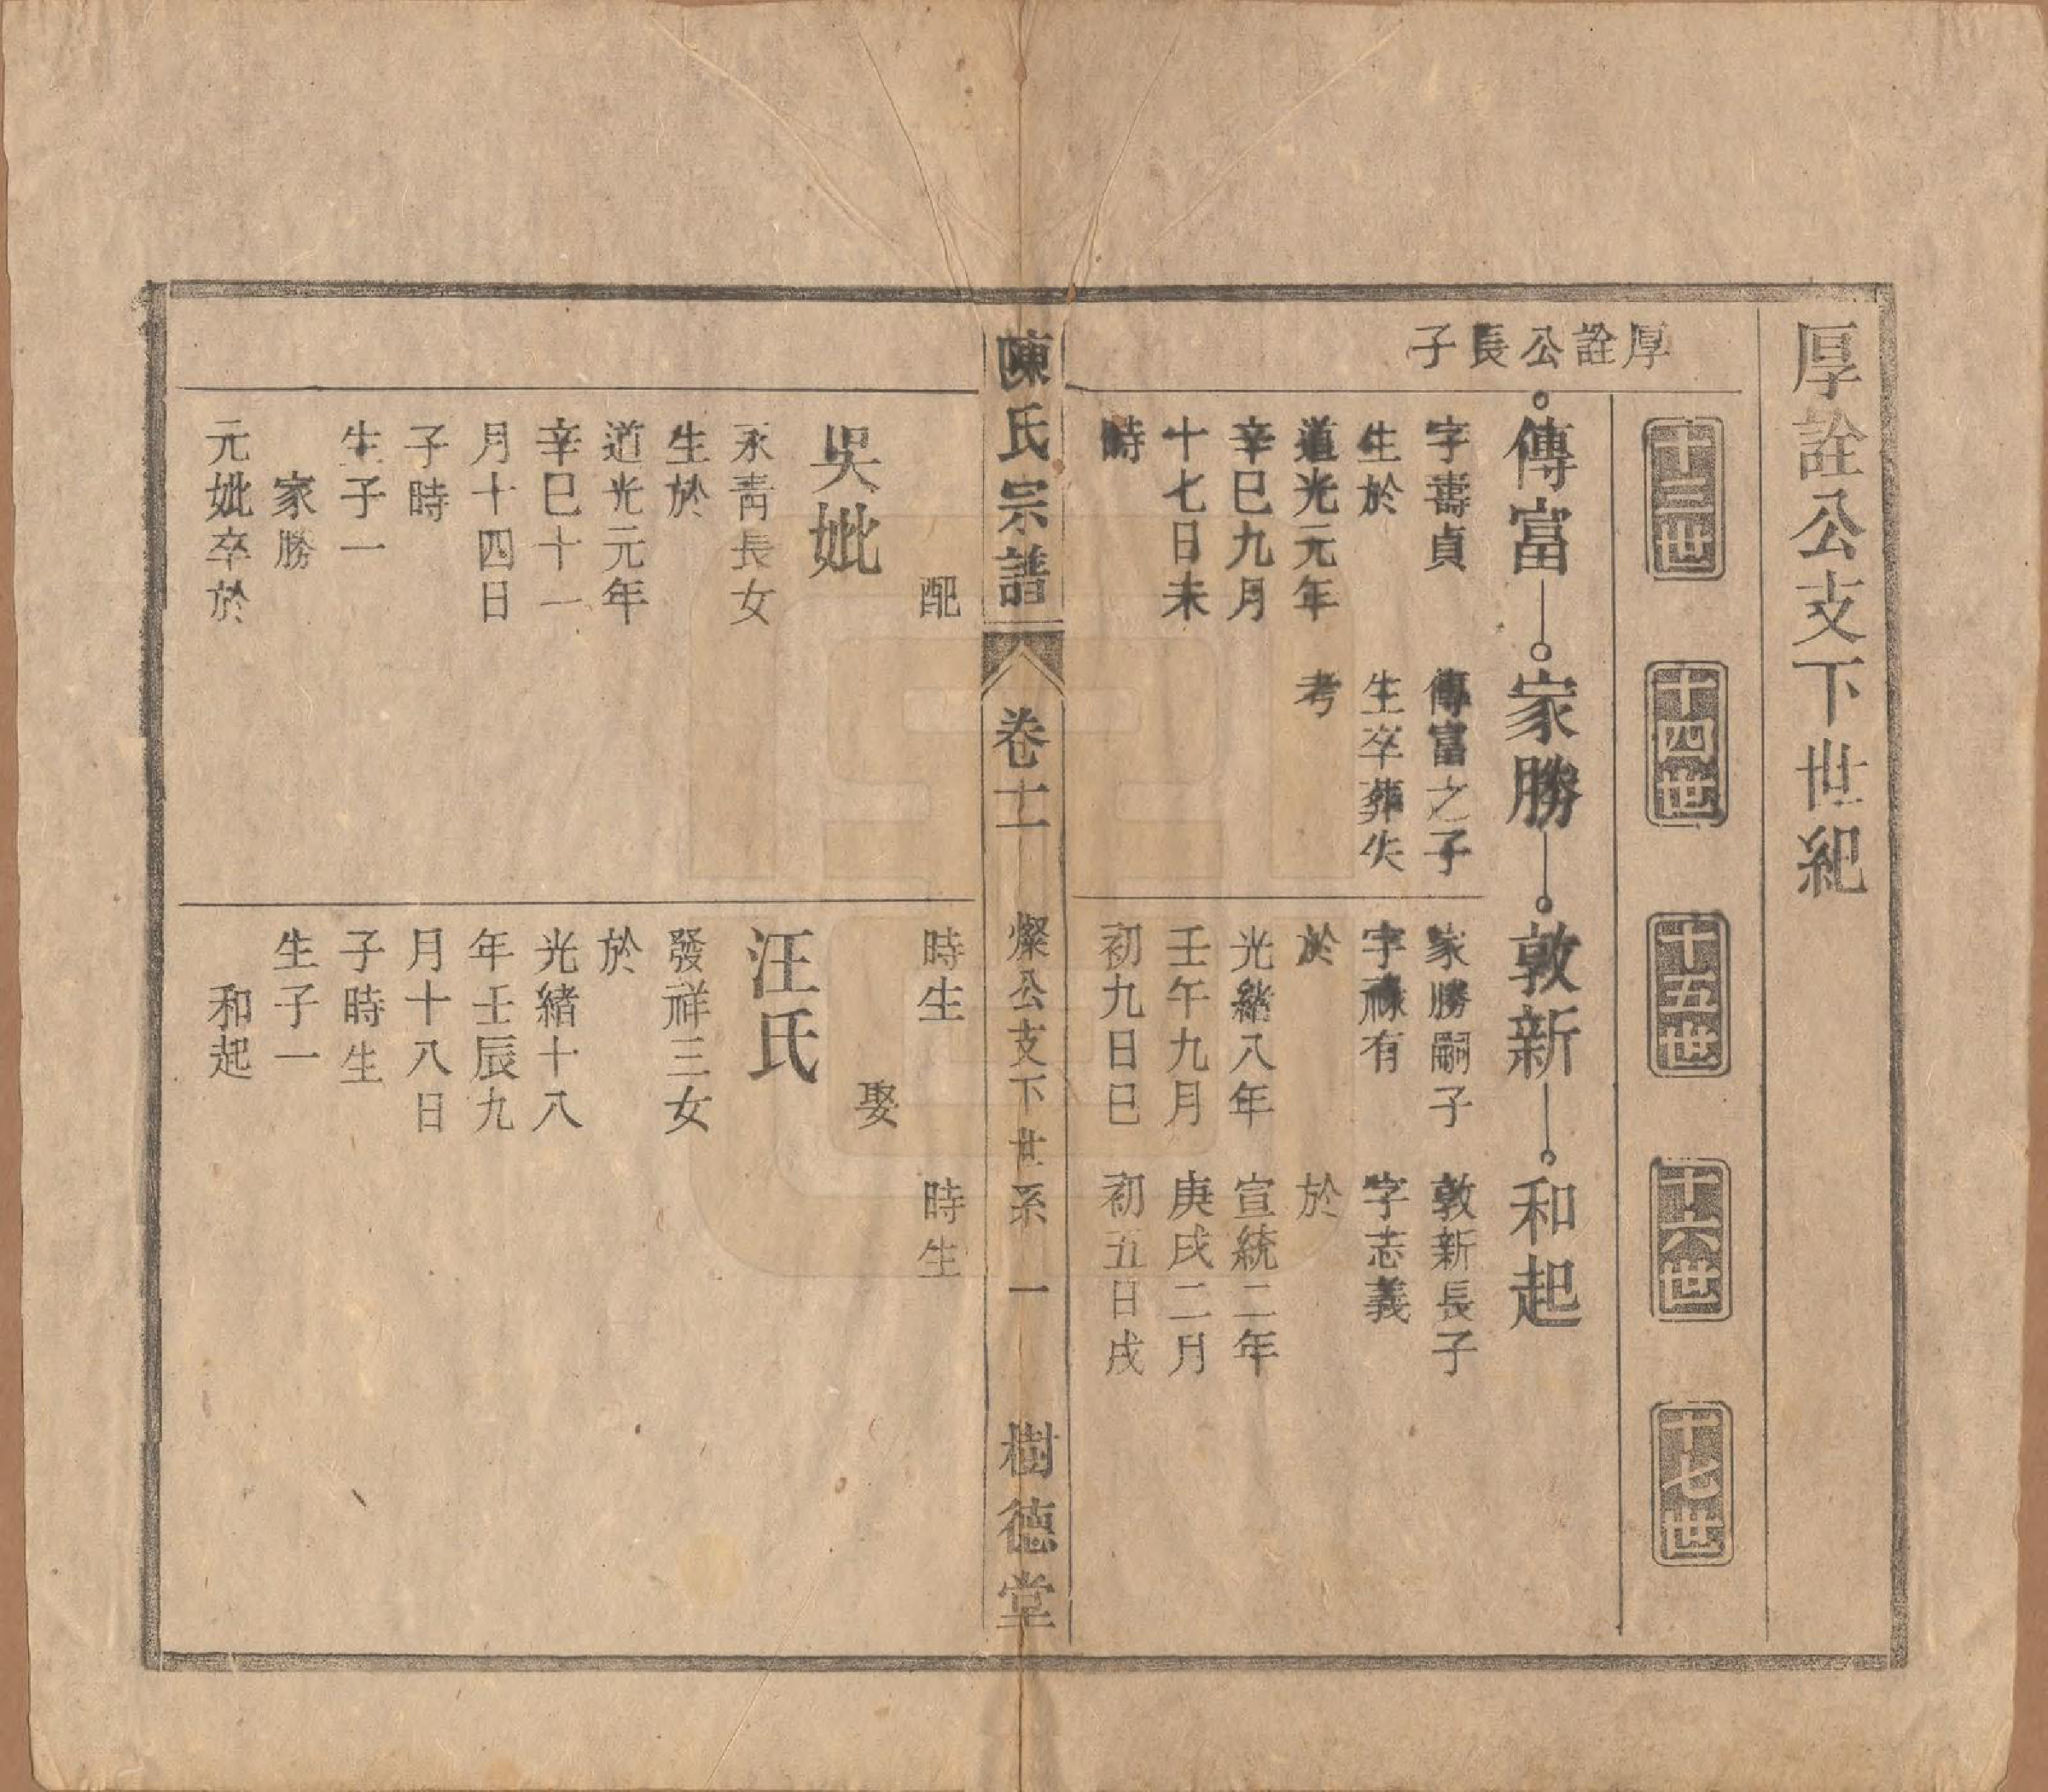 厚詮公支下世紀
十三世
十四世
十五世
十六世
十七世
厚詮公長子
傳富
家勝
敦新
和起
字壽貞
生於
道光元年
辛巳九月
十七日未
時
傳富之子
生卒葬失
考
家勝嗣子
字祿有
於
光緒八年
壬午九月
初九日巳
敦新長子
字志義
於
宣統二年
庚戌二月
初五日戌
陳氏宗譜
卷十一
燦公支下世系
一
樹德堂
配
吳妣
永青長女
生於
道光元年
辛巳十一
月十四日
子時
生子一
家勝
元妣卒於
時生
娶
汪氏
發祥三女
於
光緒十八
年壬辰九
月十八日
子時生
生子一
和起
時生